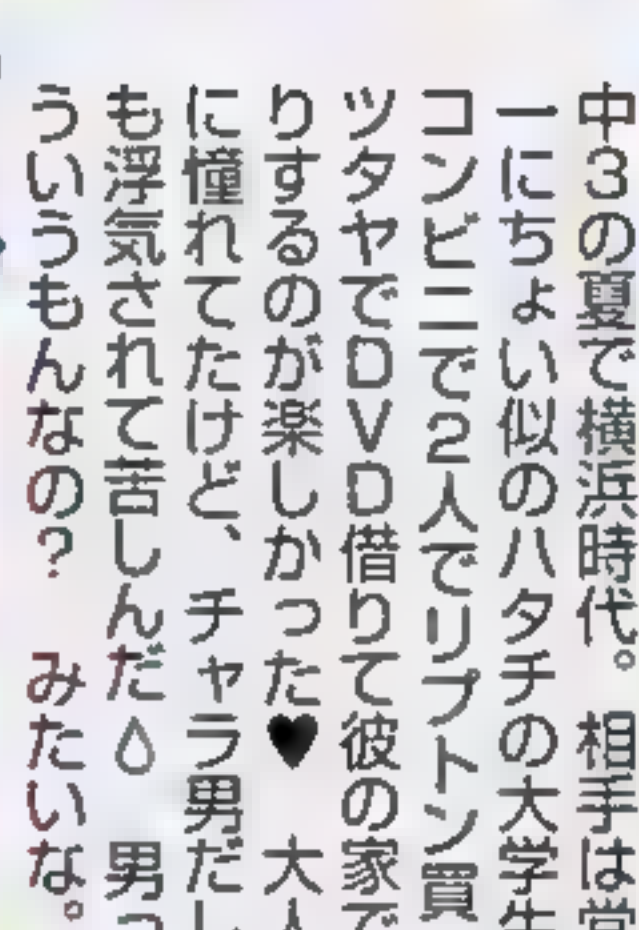 中３の夏で横浜時代。相手は
一にちょい似のハタチの大学生
コンビニで２人でリプトン買
ツタヤでＤＶＤ借りて彼の家で
りするのが楽しかった♥　大人
に憧れてたけど、チャラ男だし
も浮気されて苦しんだ💧　男っ
ういうもんなの？　みたいな。